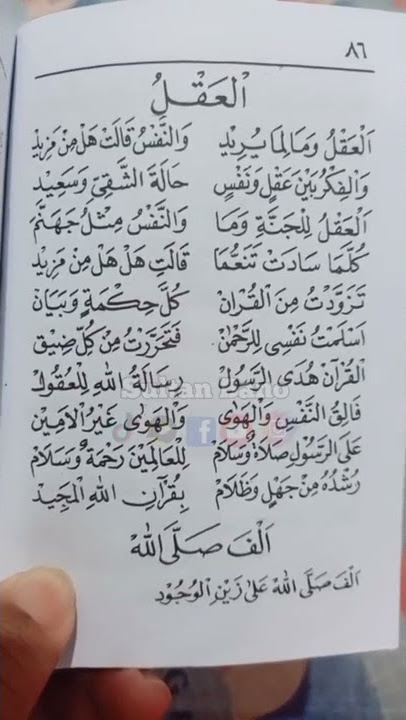 ٨٦
اَلْعَقْلُ
اَلْعَقْلُ وَمَا لِمَا يُرِيْدِ وَالنَّفْسُ قَالَتْ هَلْ مِنْ مَزِيْدِ
وَالْفِكْرُ بَيْنَ عَقْلٍ وَنَفْسٍ حَالَةُ الشَّقِيْ وَسَعِيْدِ
اَلْعَقْلُ لِلْجَنَّةِ وَمَا وَالنَّفْسُ مِثْلُ جَهَنَّمَ
كُلَّمَا سَادَتْ تَنَعُّمَا قَالَتِ هَلْ هَلْ مِنْ مَزِيْدِ
تَزَوَّدْتُ مِنَ الْقُرْانْ كُلَّ حِكْمَةٍ وَبَيَانْ
اَسْلَمْتُ نَفْسِى لِلرَّحْمٰنْ فَتَحَرَّرْتُ مِنْ كُلِّ ضِيْقِ
اَلْقُرْآنْ هُدَى الرَّسُوْلْ رِسَالَةُ اللهِ لِلْعُقُولْ
فَالِقُ النَّفْسِ وَالْهَوٰى وَالْهَوٰى غَيْرُ الْاَمِيْنِ
عَلَى الرَّسُوْلِ صَلَاةٌ وَسَلَامْ لِلْعَالَمِيْنَ رَحْمَةٌ وَسَلَامْ
رُشْدُهُ مِنْ جَهْلٍ وَظَلَامْ بِقُرْآنِ اللهِ الْمَجِيْدِ
Sultan Lano
اَلْفَ صَلَّى اللهْ
اَلْفَ صَلَّى اللهْ عَلٰى زَيْنِ الْوُجُوْدِ